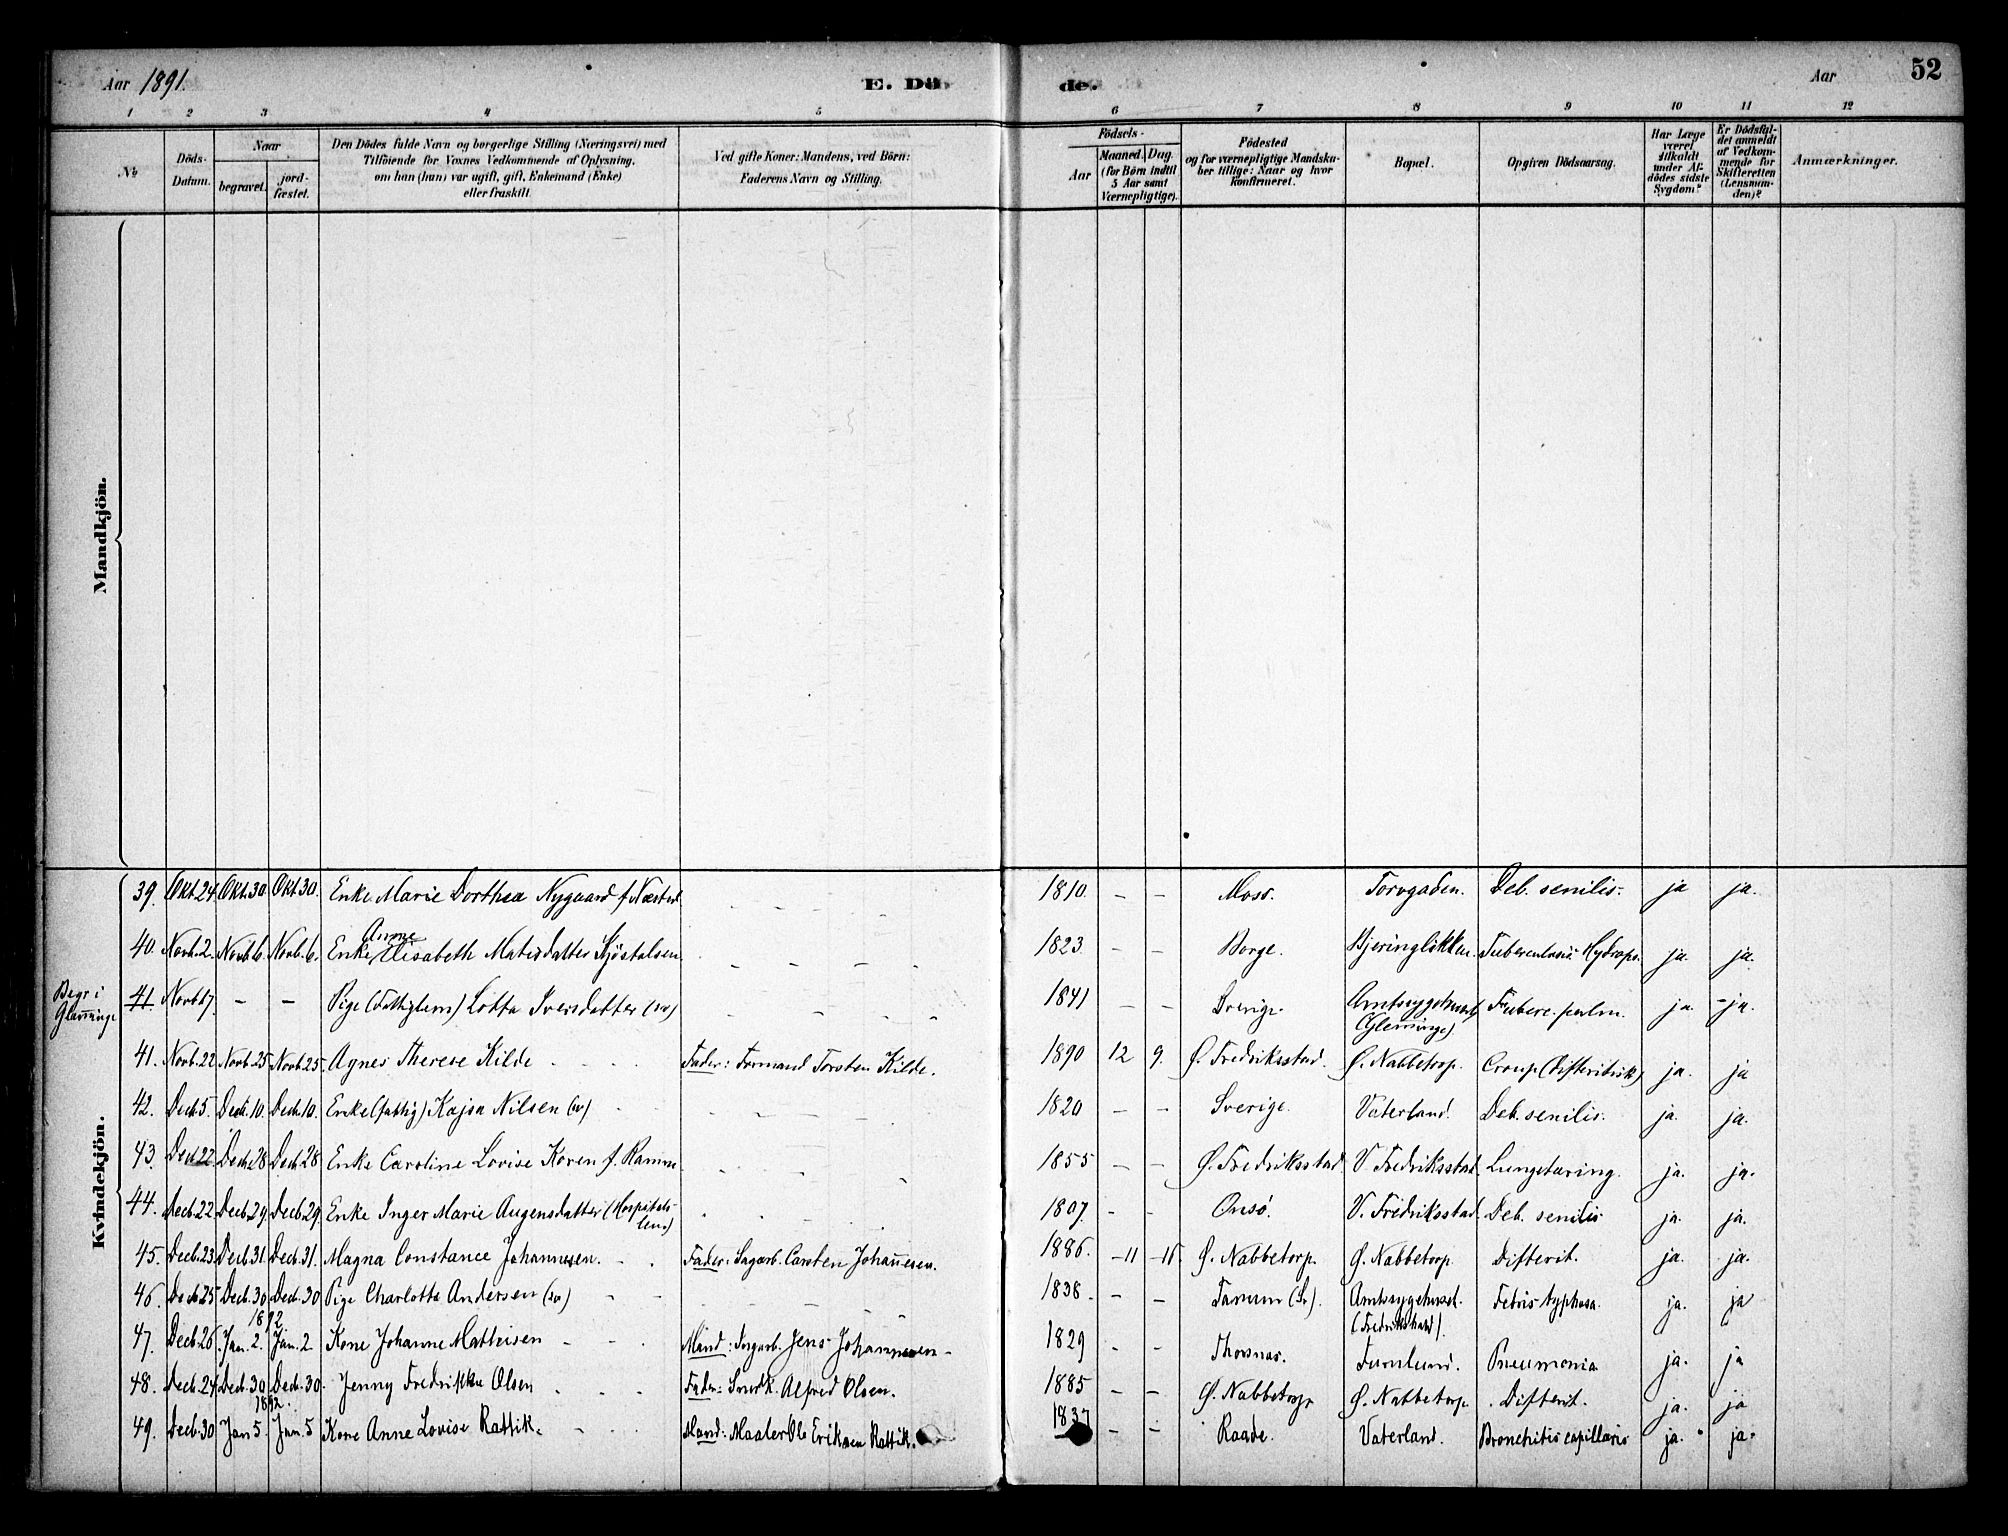 Aar 1891.
E. Dö
de.
Aar
52
1 2 3 4 5 6 7 8 9 10 11 12
№
Döds-Datum.
Naar
begravet.
jord-fæstet.
Den Dödes fulde Navn og borgerlige Stilling (Næringsvei) med
Tilföiende for Voxnes Vedkommende af Oplysning,
om han (hun) var ugift, gift, Enkemand (Enke)
eller fraskilt.
Ved gifte Koner: Mandens, ved Börn:
Faderens Navn og Stilling.
Födsels-
Aar
Maaned. Dag.
(for Börn indtil
5 Aar samt
Værnepligtige).
Födested
og for værnepligtige Mandska-
ber tillige: Naar og hvor
konfirmeret.
Bopæl.
Opgiven Dödsaarsag.
Har Læge
været
tilkaldt
under Af-
dödes sidste
Sygdom?
Er Dödsfal-
det anmeldt
af Vedkom-
mende for
Skifteretten
(Lensman-
den)?
Anmærkninger.
Mandkjön.
Kvindekjön.
39. Okt.24. Okt.30 Okt.30. Enke Marie Dorthea Nygaard f. Næsted 1810. – – Moss. Torvgaden. Deb. senilis. ja ja.
Anne
40. Novb.2. Novb.6. Novb.6. Enke Elisabeth Matisdatter Kjöstolsen 1823 – – Borge. Bjeringlökken. Tuberculosis Hydrops. ja. ja.
Begr. i
Glemminge
41. Novb.17. – – Pige (Fattiglem) Lotta Iversdatter (sv) 1841 – – Sverige. Amtssygehuset Tuberc. pulm. ja. – ja.
(Glemminge)
41. Novb.22 Novb.25 Novb.25. Agnes Therese Kilde Fader: Formand Torsten Kilde. 1890 12 9. Ø. Fredriksstad. Ø. Nabbetorp. Croup (Difteritisk) ja. ja
42. Decb.5. Decb.10. Decb.10. Enke (fattig) Kajsa Nilsen (sv) 1820 – – Sverige. Vaterland. Deb. senilis. ja. ja.
43. Decb.22. Decb.28 Decb.28 Enke Caroline Lovise Koren f. Ramm 1855 – – Ø. Fredriksstad V. Fredriksstad. Lungetæring. ja. ja.
44. Decb.22. Decb.29. Decb.29. Enke Inger Marie Augensdatter (Hospitals-
lem) 1807. – – Onsö. V. Fredriksstad. Deb. senilis ja. ja.
45. Decb.23. Decb.31. Decb.31. Magna Constance Johannesen. Fader: Sagarb. Carsten Johannesen. 1886. – 11 – 16. Ø. Nabbetorp. Ø. Nabbetorp. Difterit. ja. ja.
46. Decb.25 Decb.30 Decb.30 Pige Charlotta Andersen (sv) 1838. – – Tanum (Sv). Amtssygehuset. Febris typhosa. ja. ja
(Fredrikshald).
1892
47. Decb.26. Jan.2. Jan.2 Kone Johanne Mathisen Mand: Jens Johannesen 1829 – – Thorsnæs. Furulund. Pneumonia ja. ja
48. Decb.24 Decb.30 Decb.30. Jenny Fredrikke Olsen Fader: Alfred Olsen. 1885 – – Ø. Nabbetorp Ø. Nabbetorp. Difterit. ja. ja
1892.
49. Decb.30 Jan 5. Jan.5 Kone Anne Lovise Rattik. Mand: Maaler Ole Eriksen Rattik. 1837 – – Raade. Vaterland. Bronchitis capillaris ja. ja.